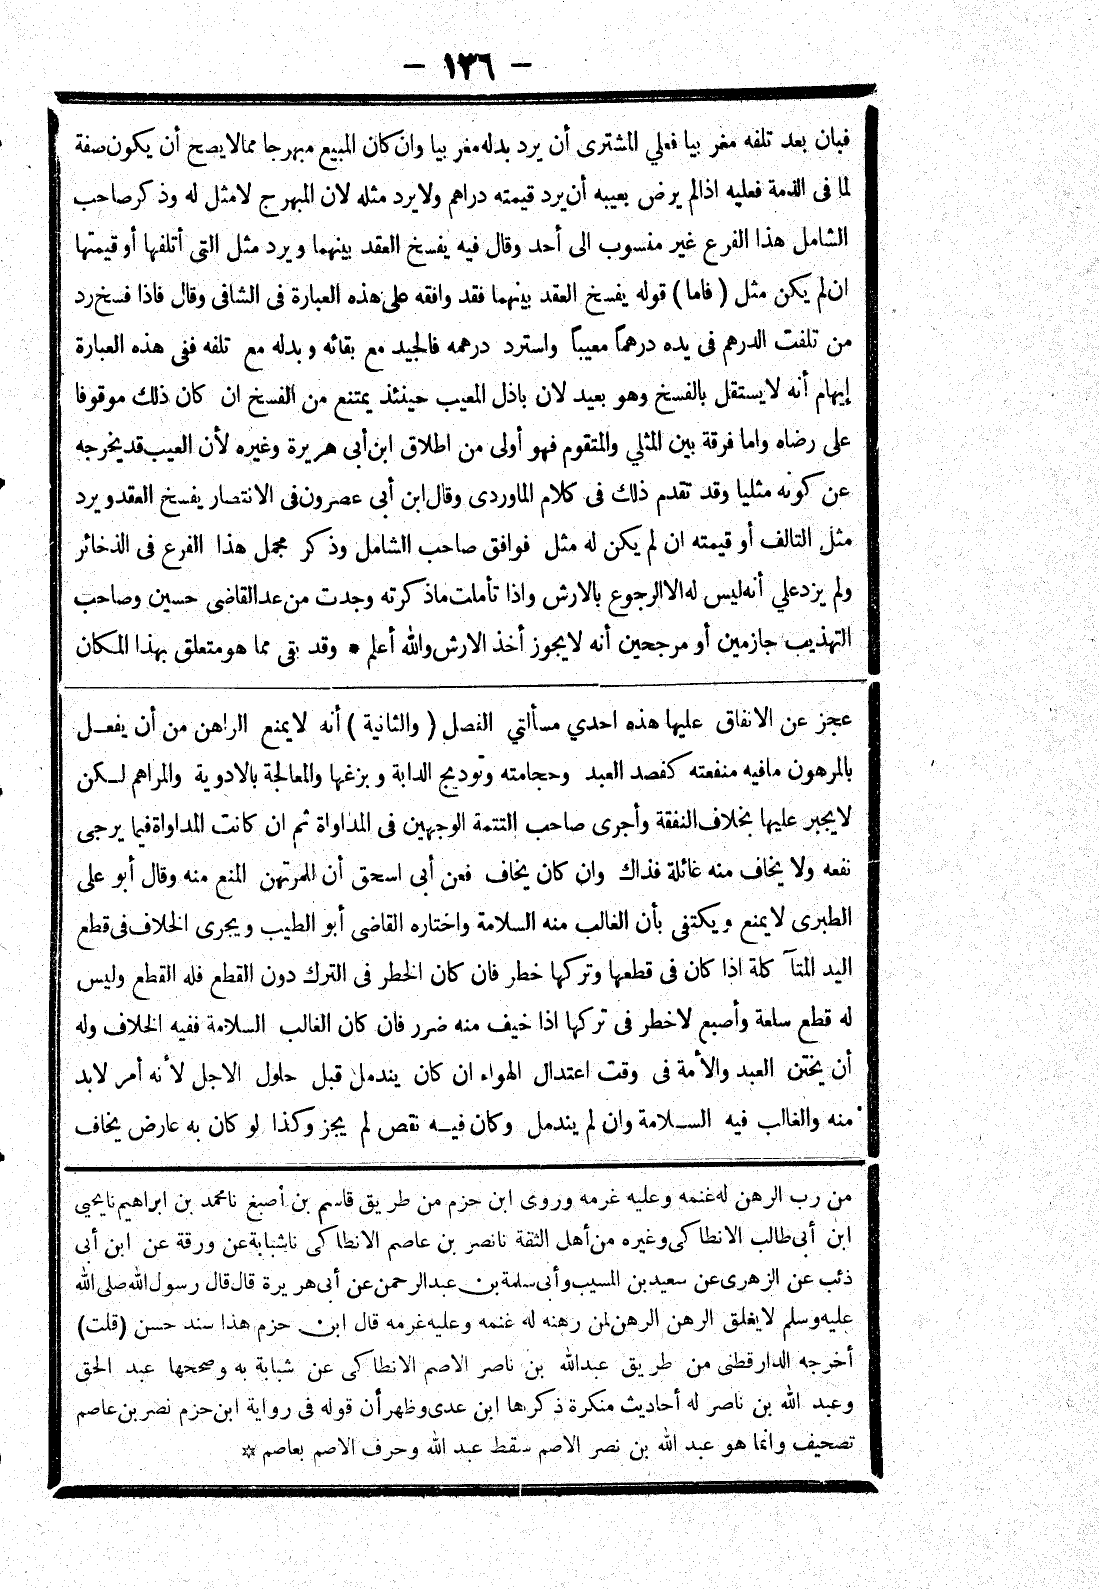 - ١٣٦ -
فبان بعد تلفه مغر بيا فعلي المشترى أن يرد بدله مغر بيا وان كان المبيع مبهرجا مما لا يصح أن يكون صفة
لما فى الذمة فعليه اذا لم يرض بعيبه أن يرد قيمته دراهم ولا يرد مثله لان المبهرج لا مثل له وذكر صاحب
الشامل هذا الفرع غير منسوب الى أحد وقال فيه يفسخ العقد بينهما ويرد مثل التى أتلفها أو قيمتها
ان لم يكن مثل ( فاما ) قوله يفسخ العقد بينهما فقد وافقه على هذه العبارة فى الشافى وقال فاذا فسخ رد
من تلفت الدرهم فى يده درهماً معيباً واسترد درهمه فالجيد مع بقائه وبدله مع تلفه ففى هذه العبارة
إيهام أنه لا يستقل بالفسخ وهو بعيد لان باذل المعيب حينئذ يمتنع من الفسخ ان كان ذلك موقوفا
على رضاه واما فرقة بين المثلي والمتقوم فهو أولى من اطلاق ابن أبى هريرة وغيره لأن العيب قد يخرجه
عن كونه مثليا وقد تقدم ذلك فى كلام الماوردى وقال ابن أبي عصرون فى الانتصار يفسخ العقد ويرد
مثل التالف أو قيمته ان لم يكن له مثل فوافق صاحب الشامل وذكر مجمل هذا الفرع فى الذخائر
ولم يزد علي أنه ليس له الا الرجوع بالارش واذا تأملت ماذكرته وجدت من عد القاضى حسين وصاحب
التهذيب جازمين أو مرجحين أنه لا يجوز أخذ الارش والله أعلم * وقد بقى مما هو متعلق بهذا المكان
عجز عن الانفاق عليها هذه احدي مسألتي الفصل ( والثانية ) أنه لا يمنع الراهن من أن يفعــل
بالمرهون مافيه منفعته كفصد العبد وحجامته وتوديج الدابة وبزغها والمعالجة بالادوية والمراهم لــكن
لا يجبر عليها بخلاف النفقة وأجرى صاحب التتمة الوجهين فى المداواة ثم ان كانت المداواة فيما يرجى
نفعه ولا يخاف منه غائلة فذاك وان كان يخاف فعن أبى اسحق أن للمرتهن المنع منه وقال أبو على
الطبرى لا يمنع ويكتفى بأن الغالب منه السلامة واختاره القاضى أبو الطيب ويجرى الخلاف فى قطع
اليد المتآ كلة اذا كان فى قطعها وتركها خطر فان كان الخطر فى الترك دون القطع فله القطع وليس
له قطع سلعة وأصبع لا خطر فى تركها اذا خيف منه ضرر فان كان الغالب السلامة ففيه الخلاف وله
أن يختن العبد والأمة فى وقت اعتدال الهواء ان كان يندمل قبل حلول الاجل لأنه أمر لابد
منه والغالب فيه الســلامة وان لم يندمل وكان فيــه نقص لم يجز وكذا لو كان به عارض يخاف
من رب الرهن له غنمه وعليه غرمه وروى ابن حزم من طريق قاسم بن أصبغ نا محمد بن ابراهيم نا يحيى
ابن أبى طالب الانطاكى وغيره من أهل الثقة نا نصر بن عاصم الانطاكى نا شبابة عن ورقة عن ابن أبى
ذئب عن الزهرى عن سعيد بن المسيب وأبى سلمة بن عبد الرحمن عن أبى هريرة قال قال رسول الله صلى الله
عليه وسلم لا يغلق الرهن الرهن لمن رهنه له غنمه وعليه غرمه قال ابن حزم هذا سند حسن (قلت)
أخرجه الدارقطنى من طريق عبد الله بن ناصر الاصم الانطاكى عن شبابة به وصححها عبد الحق
وعبد الله بن ناصر له أحاديث منكرة ذكرها ابن عدى وظهر أن قوله فى رواية ابن حزم نصر بن عاصم
تصحيف وانما هو عبد الله بن نصر الاصم سقط عبد الله وحرف الاصم بعاصم *